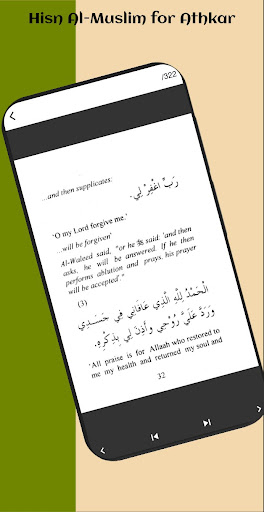 Hisn Al-Muslim for Athkar
/322
...and then supplicates:
رَبِّ اغْفِرْ لِي.
'O my Lord forgive me.'
...will be forgiven'
Al-Waleed said, "or he ﷺ said: 'and then
asks, he will be answered. If he then
performs ablution and prays, his prayer
will be accepted'."
(3)
الْحَمْدُ لِلَّهِ الَّذِي عَافَانِي فِي جَسَدِي
وَرَدَّ عَلَيَّ رُوْحِي وَأَذِنَ لِي بِذِكْرِهِ.
'All praise is for Allaah who restored to
me my health and returned my soul and
32